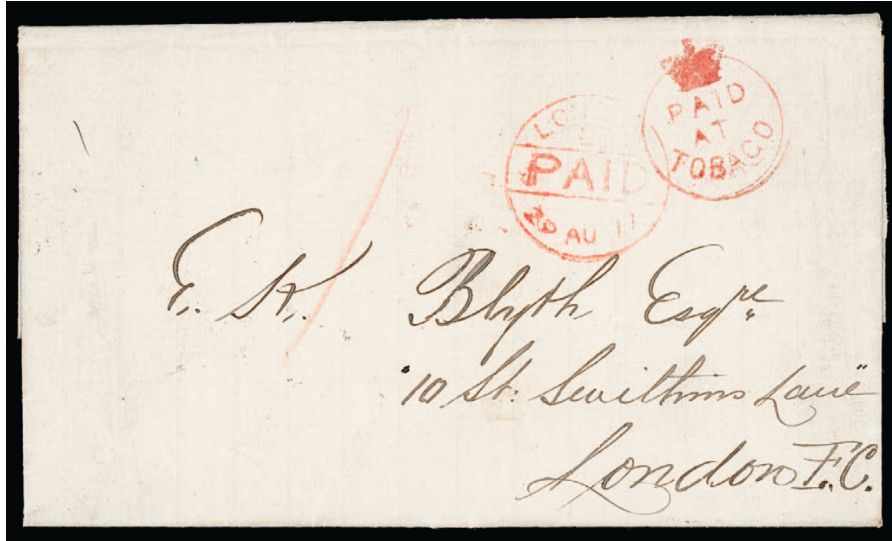 PAID
AT
TOBAGO
PAID
AU 11
E. K. Blyth Esqre
"10 St. Swithins Lane"
London E.C.